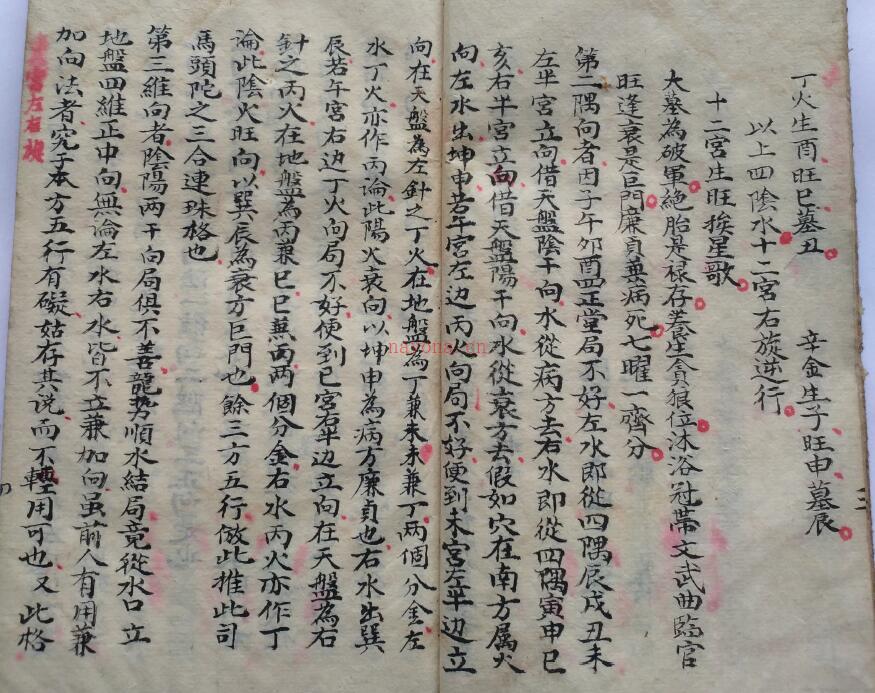 丁火生酉旺巳墓丑 辛金生子旺申墓辰
以上四陰水十二宮右旋逆行
十二宮生旺挨星歌
大墓為破軍絶胎是祿存養生貪狼位沐浴冠帶文武曲臨官
旺逢衰是巨門廉貞與病死七曜一齊分
第二隅向者因子午夘酉正堂局不好左水即從四隅辰戌丑未
左半宮立向借天盤陰干向水從病方去右水即從四隅寅申巳
亥右半宮立向借天盤陽干向水從衰方去假如穴在南方属火
向左水出坤申若午宮左边丙火向局不好便到未宮左半边立
向在天盤為左針之丁火在地盤為丁兼未未兼丁兩個分金左
水丁火亦作丙論此陽火衰向以坤申為病方廉貞也右水出巽
辰若午宮右边丁火向局不好便到巳宮右半边立向在天盤為右
針之丙火在地盤為丙兼巳巳兼丙兩個分金右水丙火亦作丁
論此陰火旺向以巽辰為衰方巨門也餘三方五行倣此推此司
馬頭陀之三合連珠格也
第三維向者陰陽兩干向局俱不善龍势順水結局竟從水口立
地盤四維正中向無論左水右水皆不立兼加向虽前人有用兼
加向法者究于本方五行有礙姑存其说而不輕用可也又此格
宮左右旋
nayona.cn